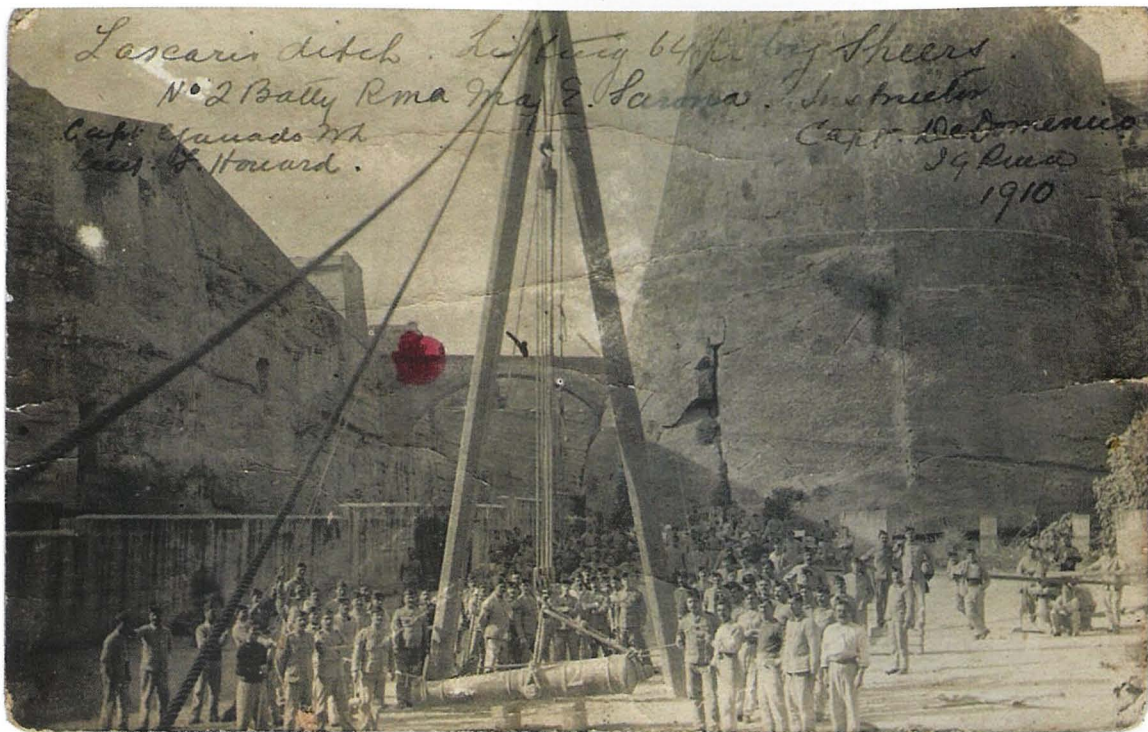 Lascaris ditch. Lifting 64pr by Sheers.
No 2 Batty Rma Maj E. Sarona. Instructor
Capt Ganado Wh
F. Howard.
Capt. DeDomenico
IG Rma
1910